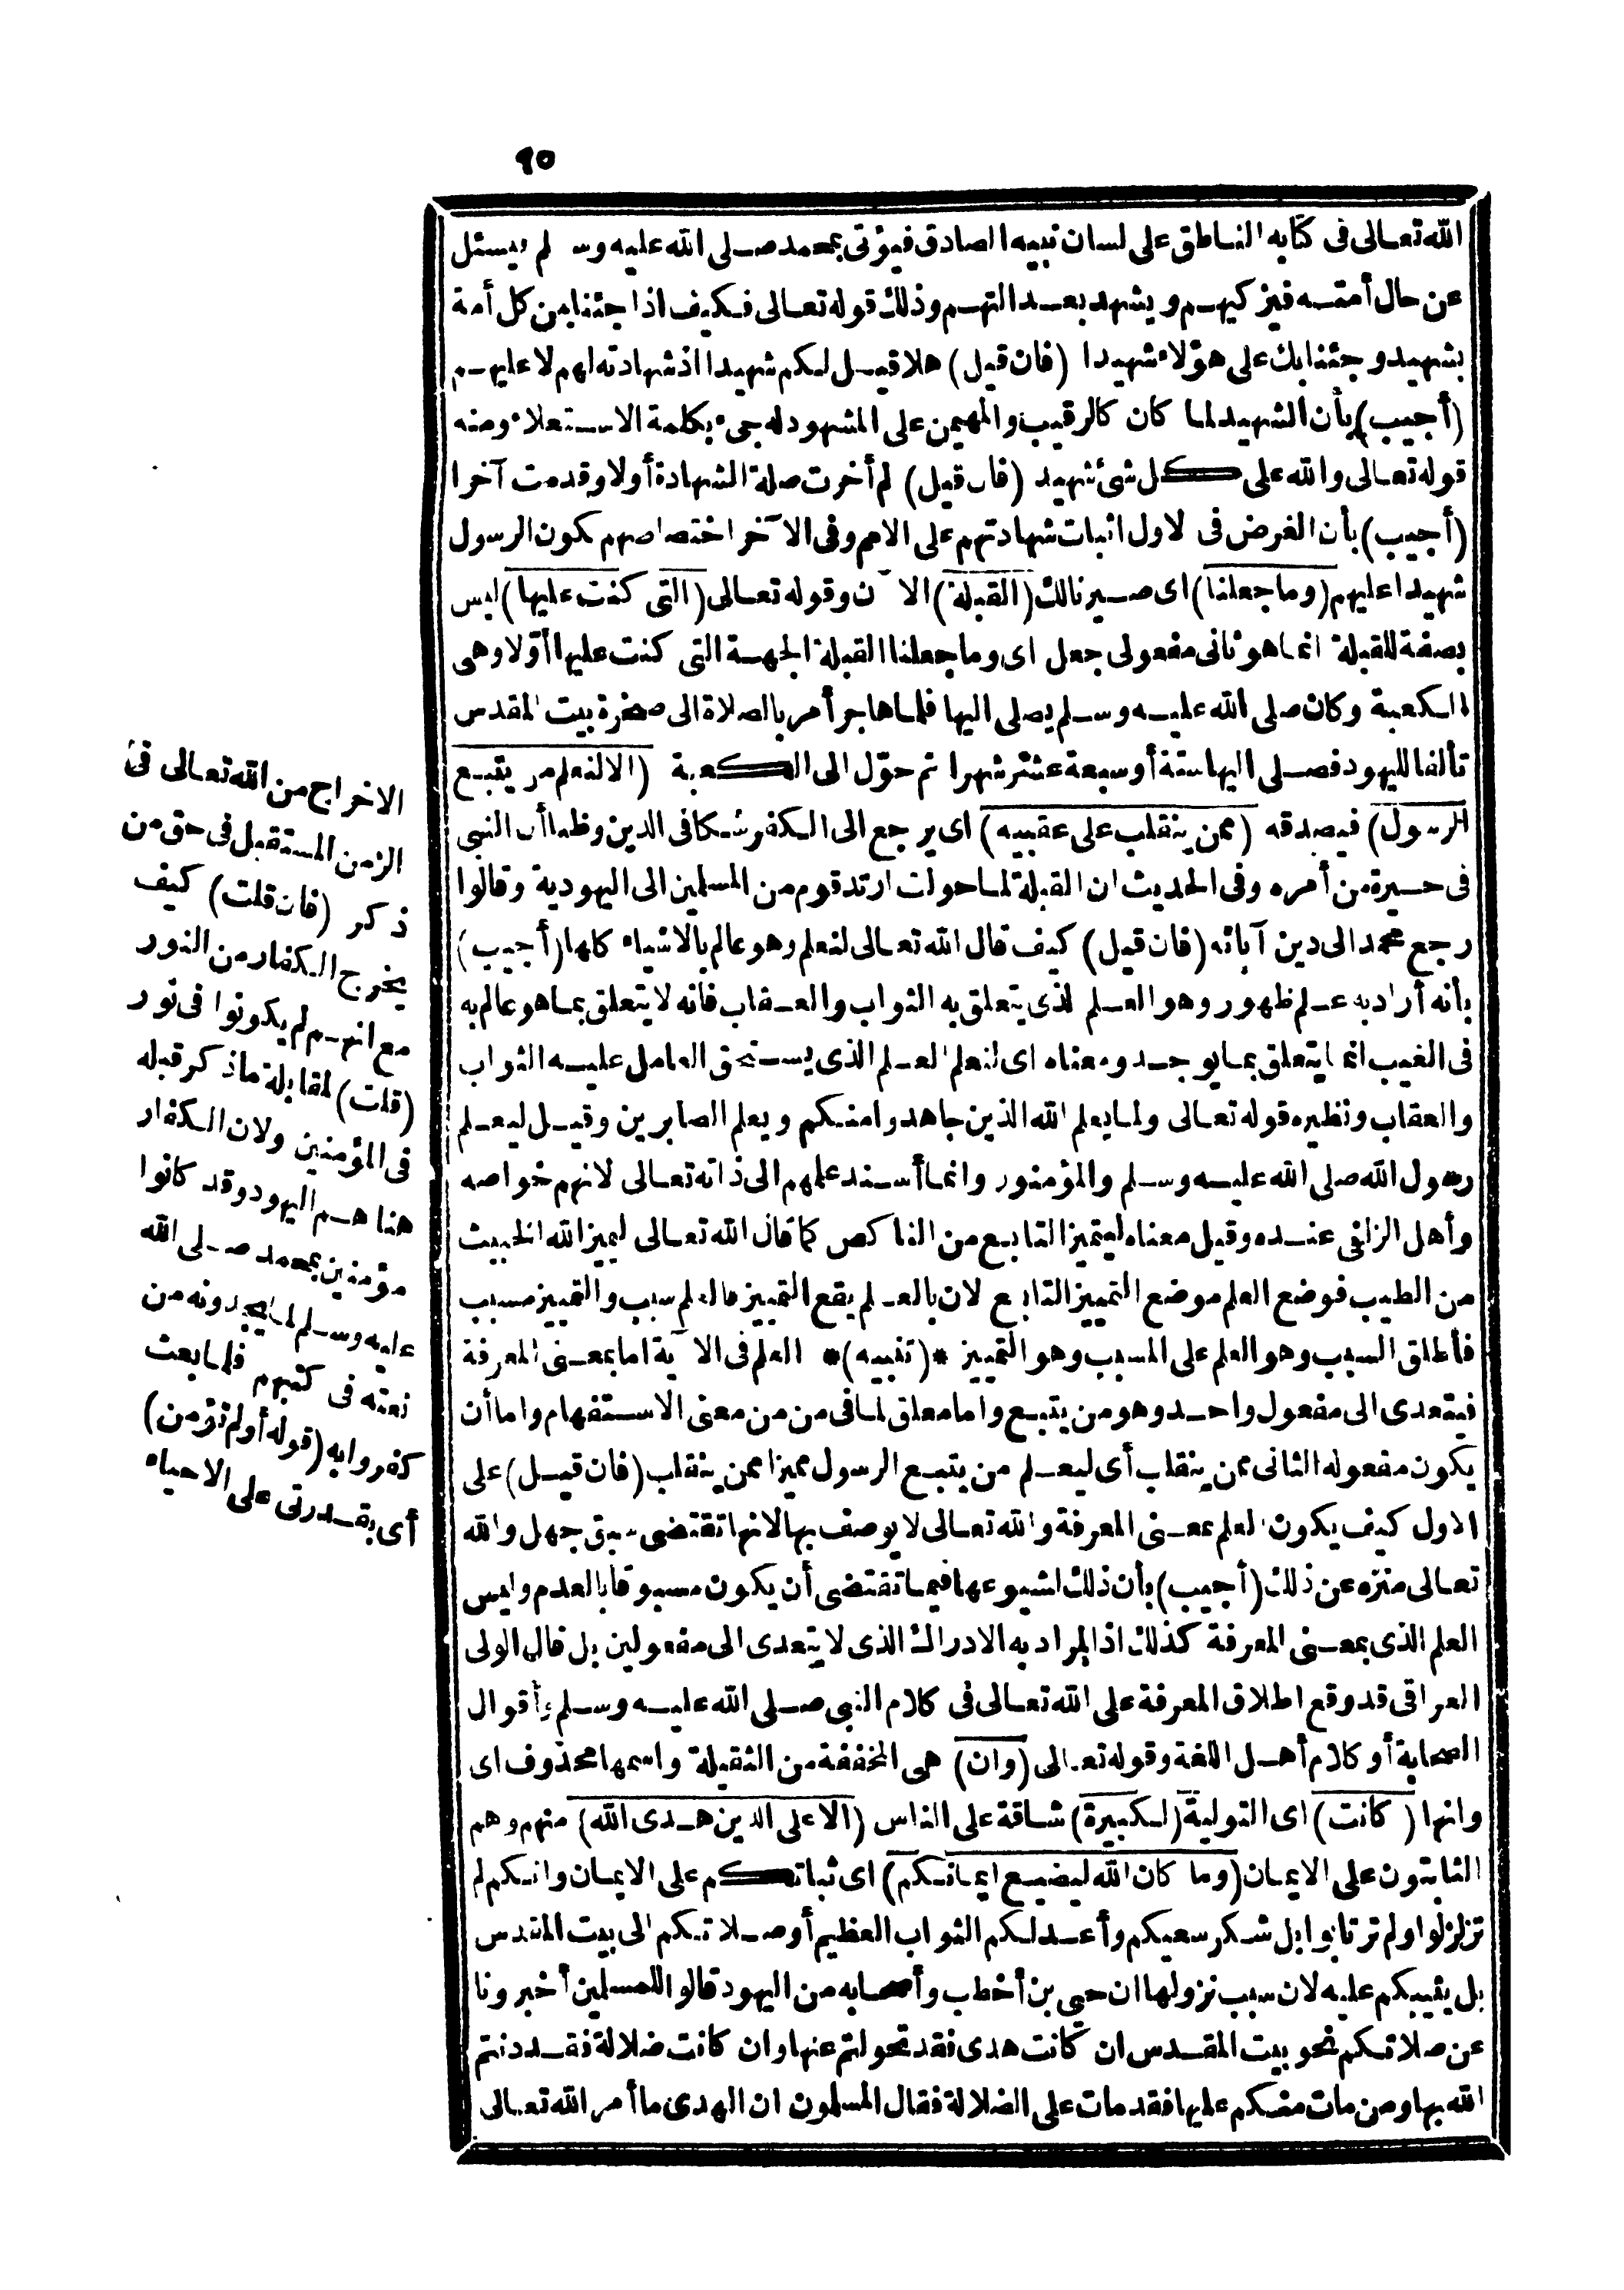 ٩٥
الله تعالى فى كتابه الناطق على لسان نبيه الصادق فيؤتى بمحمد صلى الله عليه وسلم ويسئل
عن حال أمته فيزكيهم ويشهد بعد التهم وذلك قوله تعالى فكيف اذا جئنا من كل أمة
بشهيد وجئنا بك على هؤلاء شهيدا (فان قيل) هلا قيل لكم شهيدا اذ شهادته لهم لا عليهم
(أجيب) بأن الشهيد لما كان كالرقيب والمهيمن على المشهود له جىء بكلمة الاستعلاء ومنه
قوله تعالى والله على كل شئ شهيد (فان قيل) لم أخرت صلة الشهادة أولا وقدمت آخرا
(أجيب) بأن الغرض فى الاول اثبات شهادتهم على الامم وفى الآخر اختصاصهم بكون الرسول
شهيدا عليهم (وما جعلنا) اى صيرنا لك (القبلة) الآن وقوله تعالى (التى كنت عليها) ليس
بصفة للقبلة انما هو ثانى مفعولى جعل اى وما جعلنا القبلة الجهة التى كنت عليها أوّلا وهى
الكعبة وكان صلى الله عليه وسلم يصلى اليها فلما هاجر أمر بالصلاة الى صخرة بيت المقدس
تألفا لليهود فصلى اليها ستة أو سبعة عشر شهرا ثم حوّل الى الكعبة (الا لنعلم من يتبع
الرسول) فيصدقه (ممن ينقلب على عقبيه) اى يرجع الى الكفر شكا فى الدين وظنا أن النبى
فى حيرة من أمره وفى الحديث ان القبلة لما حولت ارتد قوم من المسلمين الى اليهودية وقالوا
رجع محمد الى دين آبائه (فان قيل) كيف قال الله تعالى لنعلم وهو عالم بالاشياء كلها (أجيب)
بأنه أراد به علم ظهور وهو العلم الذى يتعلق به الثواب والعقاب فانه لا يتعلق بما هو عالم به
فى الغيب انما يتعلق بما يوجد ومعناه اى لنعلم العلم الذى يستحق العامل عليه الثواب
والعقاب ونظيره قوله تعالى ولما يعلم الله الذين جاهدوا منكم ويعلم الصابرين وقيل ليعلم
رسول الله صلى الله عليه وسلم والمؤمنون وانما أسند علمهم الى ذاته تعالى لانهم خواصه
وأهل الزلفى عنده وقيل معناه ليتميز التابع من الناكص كما قال الله تعالى ليميز الله الخبيث
من الطيب فوضع العلم موضع التمييز التابع لان بالعلم يقع التمييز فالعلم سبب والتمييز مسبب
فأطلق السبب وهو العلم على المسبب وهو التمييز * (تنبيه) * العلم فى الآية اما بمعنى المعرفة
فيتعدى الى مفعول واحد وهو من يتبع واما معلق لما فى من من معنى الاستفهام واما أن
يكون مفعوله الثانى ممن ينقلب أى ليعلم من يتبع الرسول مميزا ممن ينقلب (فان قيل) على
الاول كيف يكون العلم بمعنى المعرفة والله تعالى لا يوصف بها لانها تقتضى سبق جهل والله
تعالى منزه عن ذلك (أجيب) بأن ذلك لشيوعها فيما تقتضى أن يكون مسبوقا بالعدم وليس
العلم الذى بمعنى المعرفة كذلك اذ المراد به الادراك الذى لا يتعدى الى مفعولين بل قال الولى
العراقى قد وقع اطلاق المعرفة على الله تعالى فى كلام النبى صلى الله عليه وسلم وأقوال
الصحابة أو كلام أهل اللغة وقوله تعالى (وان) هى المخففة من الثقيلة واسمها محذوف اى
وانها (كانت) اى التولية (لكبيرة) شاقة على الناس (الا على الذين هدى الله) منهم وهم
الثابتون على الايمان (وما كان الله ليضيع ايمانكم) اى ثباتكم على الايمان وانكم لم
تزلزلوا ولم ترتابوا بل شكر سعيكم وأعد لكم الثواب العظيم أو صلاتكم الى بيت المقدس
بل يثيبكم عليه لان سبب نزولها ان حيى بن أخطب وأصحابه من اليهود قالوا للمسلمين أخبرونا
عن صلاتكم نحو بيت المقدس ان كانت هدى فقد تحولتم عنها وان كانت ضلالة فقد دنتم
الله بها ومن مات منكم عليها فقد مات على الضلالة فقال المسلمون ان الهدى ما أمر الله تعالى
الاخراج من الله تعالى فى
الزمن المستقبل فى حق من
ذكر (فان قلت) كيف
يخرج الكفار من النور
مع انهم لم يكونوا فى نور
(قلت) لمقابلة ما ذكر قبله
فى المؤمنين ولان الكفار
هنا هم اليهود وقد كانوا
مؤمنين بمحمد صلى الله
عليه وسلم لما يجدونه من
نعته فى كتبهم فلما بعث
كفروا به (قوله أولم تؤمن)
أى بقدرتى على الاحياء